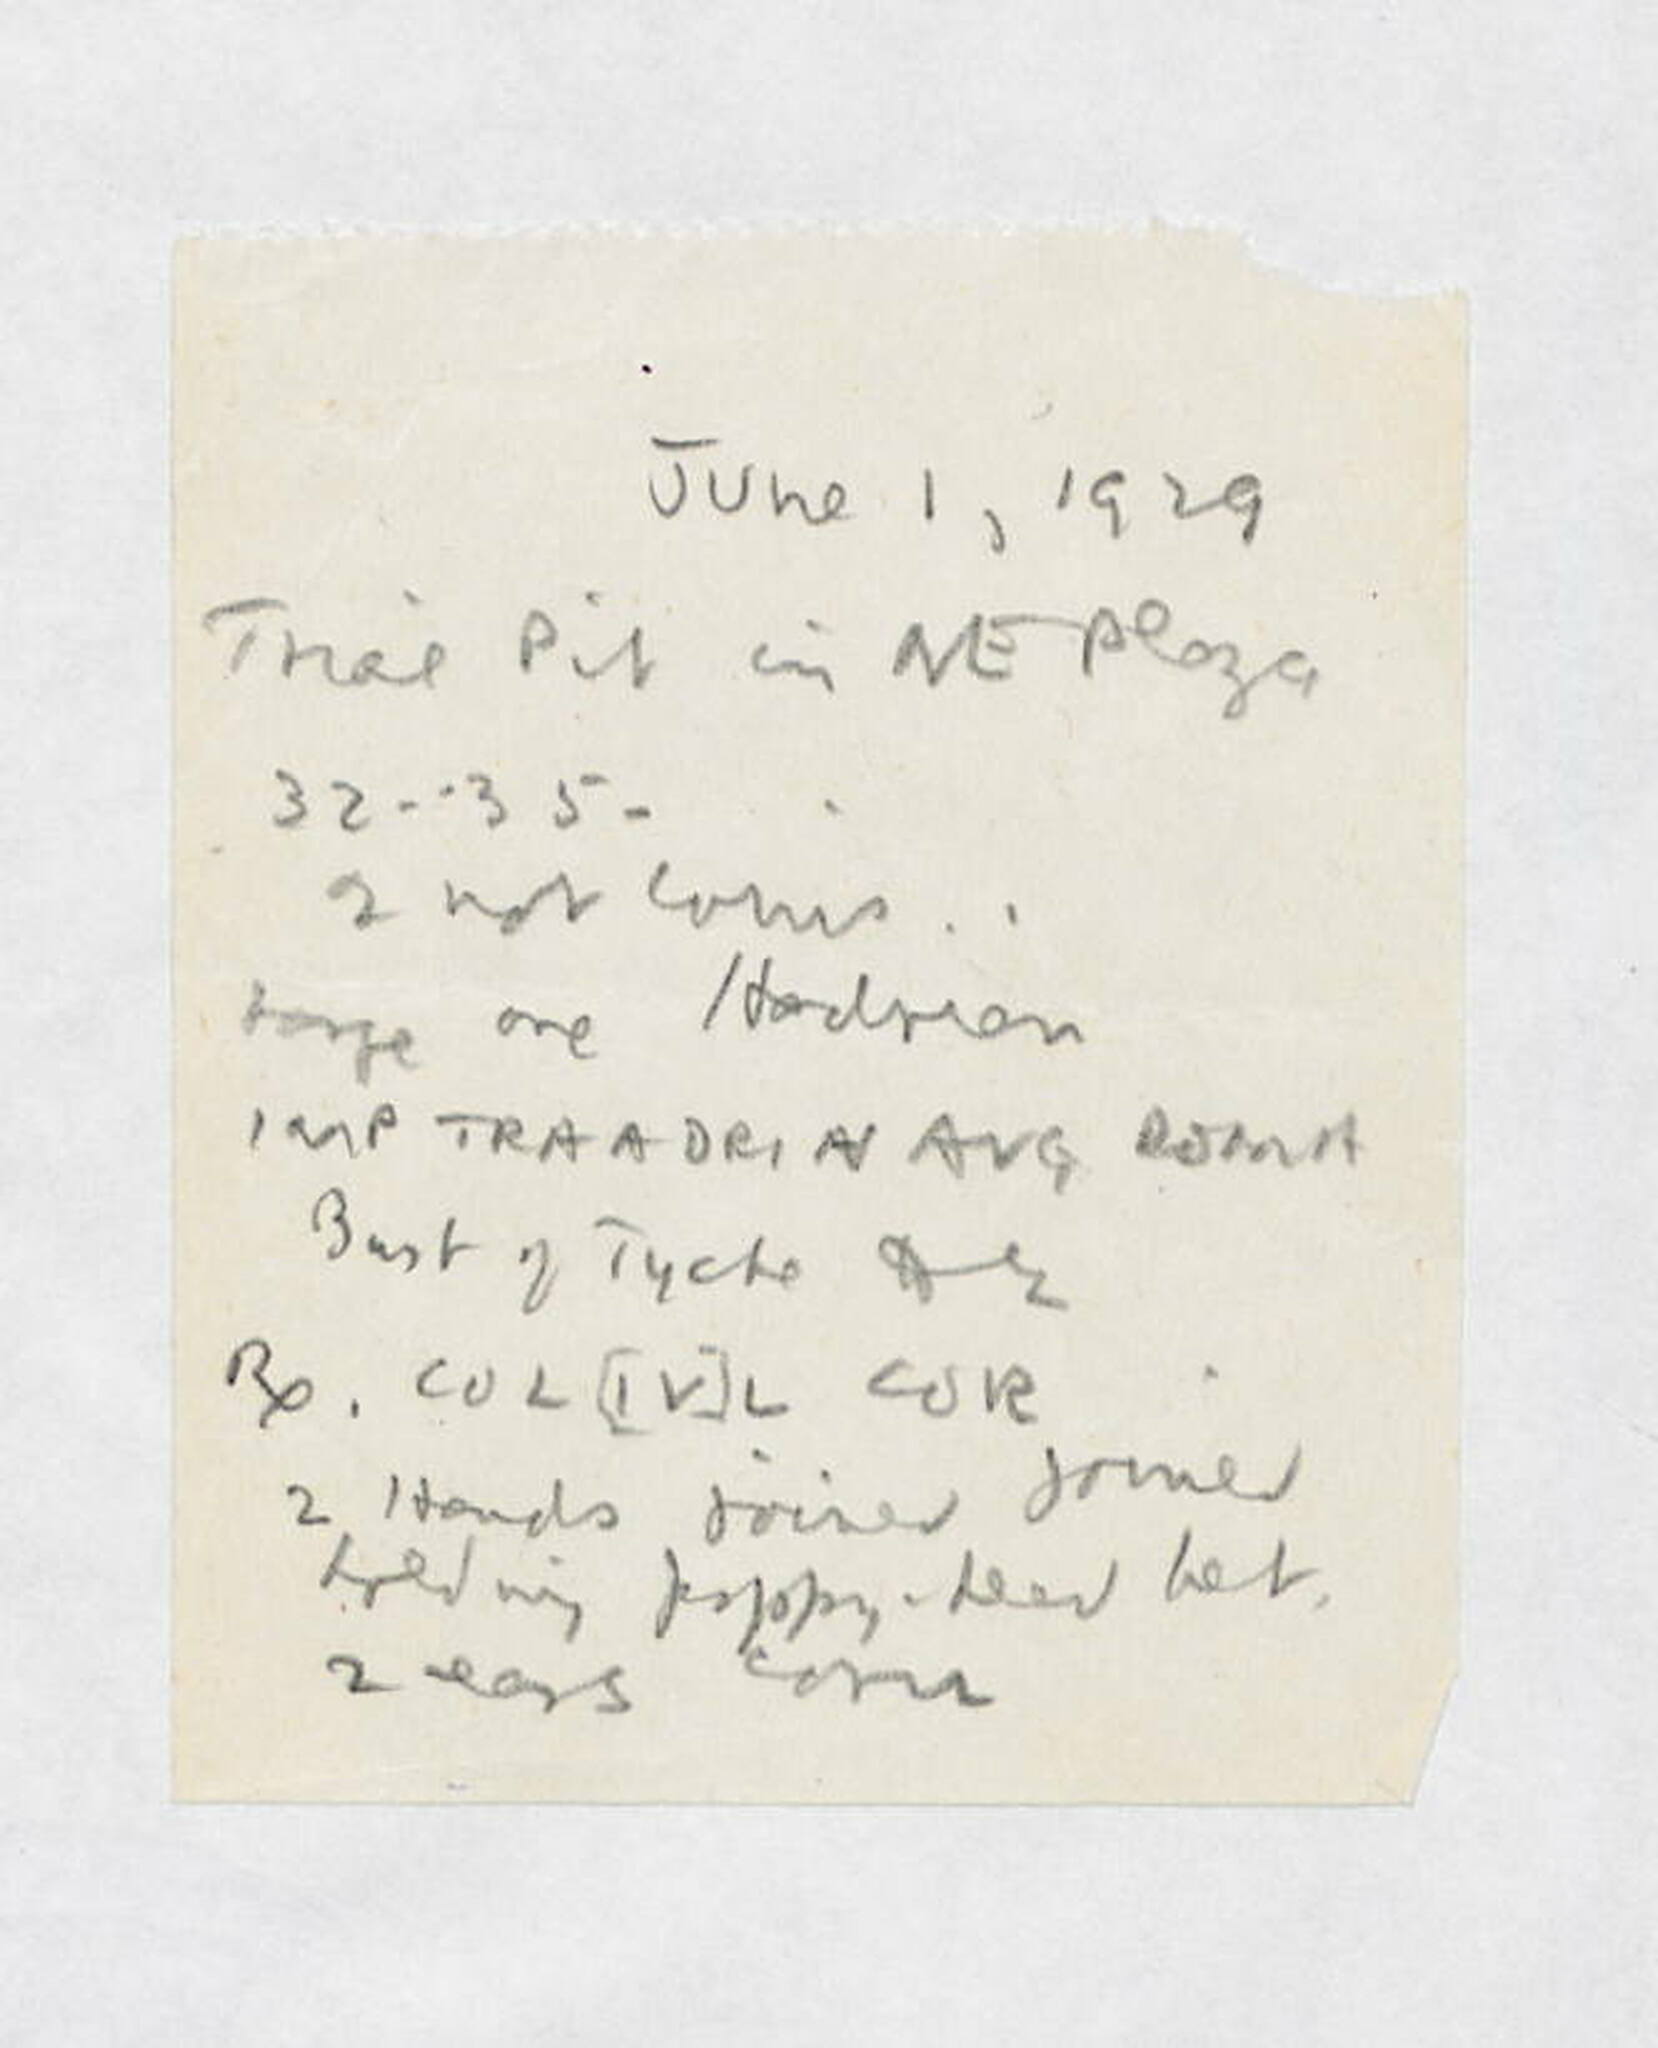 June 1, 1929
Trial Pit in NE Plaza
32--35-
2 not Coins..
Large one Hadrian
IMP TRA ADRIAN AVG ROMA
Bust of Tyche
Rx. COL [IV]L COR
2 Hands joined joined
holding poppy-head bet.
2 ears corn